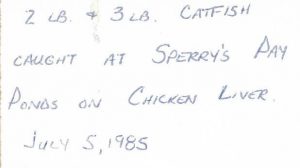 2 LB. & 3 LB. CATFISH
CAUGHT AT SPERRY'S PAY
PONDS ON CHICKEN LIVER.
JULY 5, 1985